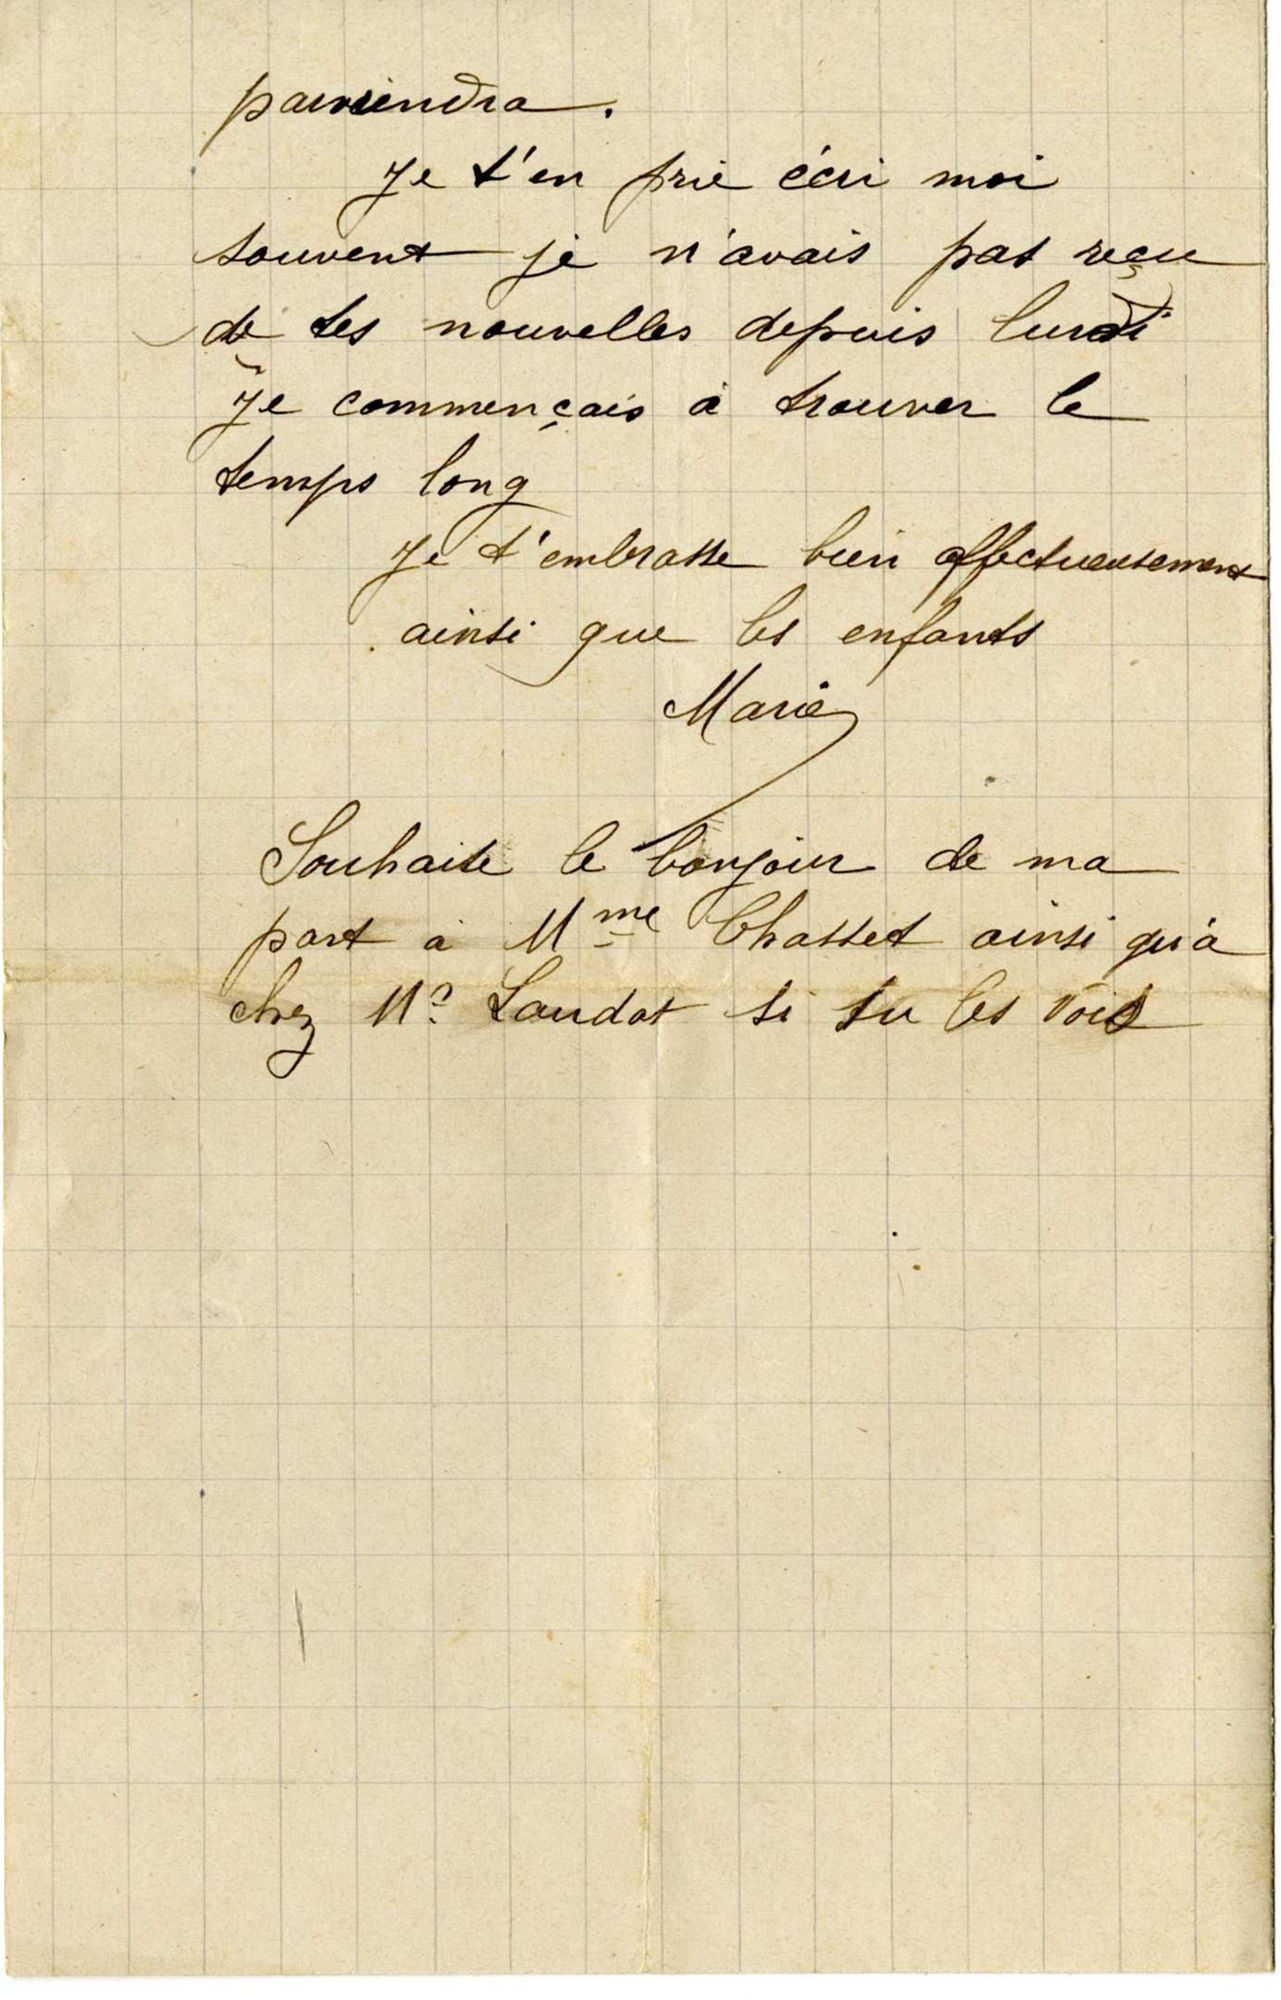 parviendra.
Je t'en prie écri moi
souvent je n'avais pas reçu
de tes nouvelles depuis lundi
Je commençais à trouver le
temps long
Je t'embrasse bien affectueusement
ainsi que les enfants
Marie
Souhaite le bonjour de ma
part à Mme Chasset ainsi qu'à
chez Mr Landat si tu les vois